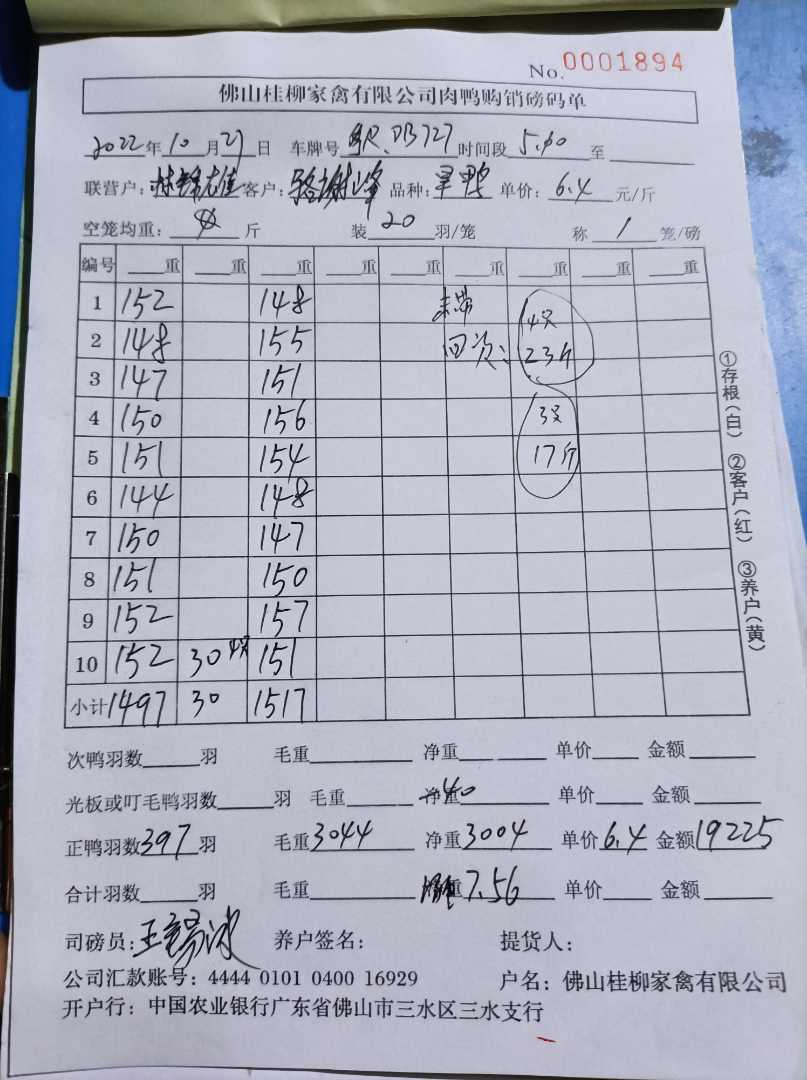 No. 0001894
佛山桂柳家禽有限公司肉鸭购销磅码单
2022年10月27日 车牌号 DB727 时间段 5.00 至
联营户: 客户: 品种: 单价: 6.4 元/斤
空笼均重: 斤 装 20 羽/笼 称 1 笼/磅
编号 重 重 重 重 重 重 重 重 重
1 152 148 4只
2 148 155 回 23斤
3 147 151
4 150 156 3只
5 151 154 17斤
6 144 148
7 150 147
8 151 150
9 152 157
10 152 30 4只 151
小计 1497 30 1517
次鸭羽数 羽 毛重 净重 单价 金额
光板或叮毛鸭羽数 羽 毛重 净重 -40 单价 金额
正鸭羽数 397 羽 毛重 3044 净重 3004 单价 6.4 金额 19225
合计羽数 羽 毛重 重 7.56 单价 金额
司磅员: 王 养户签名: 提货人:
公司汇款账号: 4444 0101 0400 16929 户名: 佛山桂柳家禽有限公司
开户行: 中国农业银行广东省佛山市三水区三水支行
①存根(白) ②客户(红) ③养户(黄)